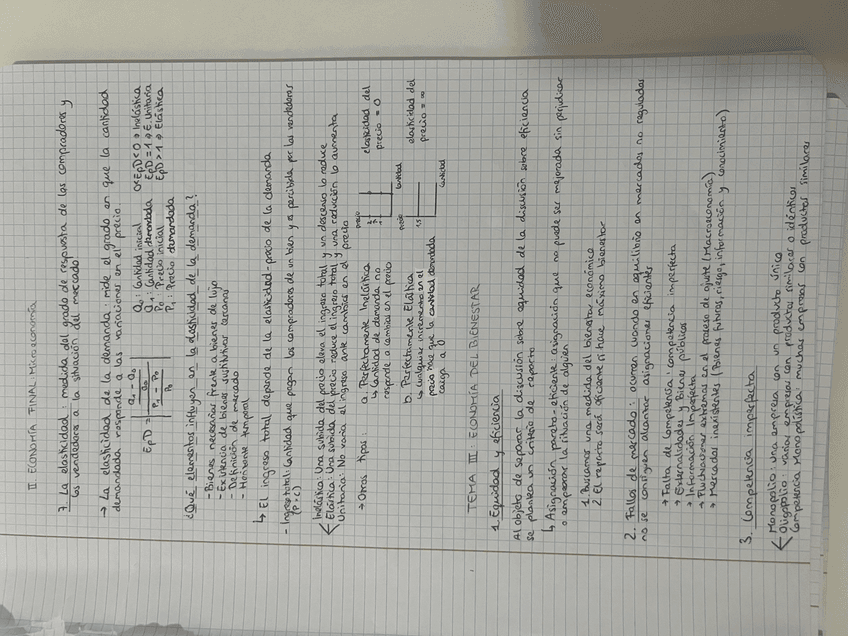 II. ECONOMÍA FINAL Microeconomía
7. La elasticidad: medida del grado de respuesta de los compradores y
los vendedores a la situación del mercado
→ La elasticidad de la demanda: mide el grado en que la cantidad
demandada responde a las variaciones en el precio.
EpD = | Q1 - Q0 / Q0 / P1 - P0 / P0 |
Q0: Cantidad inicial
Q1: Cantidad demandada
P0: Precio inicial
P1: Precio demandada
0<EpD<0 → Inelástica
EpD = 1 → E. Unitaria
EpD > 1 → Elástica
¿Qué elementos influyen en la elasticidad de la demanda?
- Bienes necesarios frente a bienes de lujo
- Existencia de bienes sustitutivos cercanos
- Definición de mercado
- Horizonte temporal
↳ El ingreso total depende de la elasticidad-precio de la demanda
- Ingreso total: Cantidad que pagan los compradores de un bien y es percibida por los vendedores
(P·C)
Inelástica: Una subida del precio eleva el ingreso total y un descenso lo reduce
Elástica: Una subida del precio reduce el ingreso total y una reducción lo aumenta
Unitaria: No varía el ingreso ante cambios en el precio
→ Otros tipos
a. Perfectamente Inelástica
↳ Cantidad de demanda no
responde a cambios en el precio
precio
Cantidad
elasticidad del
precio = 0
b. Perfectamente Elástica
↳ Cualquier incremento en el
precio hace que la cantidad demandada
caiga a 0
precio
Cantidad
elasticidad del
precio = ∞
TEMA III: ECONOMÍA DEL BIENESTAR
1. Equidad y eficiencia
Al objeto de separar la discusión sobre equidad de la discusión sobre eficiencia
se plantea un criterio de reparto
↳ Asignación pareto-eficiente: asignación que no puede ser mejorada sin perjudicar
o empeorar la situación de alguien
1. Buscamos una medida del bienestar económico
2. El reparto será eficiente si hace máximo bienestar
2. Fallos de mercado: ocurren cuando en equilibrio en mercados no regulados
no se consiguen alcanzar asignaciones eficientes
→ Falta de competencia: competencia imperfecta
→ Externalidades y Bienes públicos
→ Información Imperfecta
→ Fluctuaciones extremas en el proceso de ajuste (Macroeconomía)
→ Mercados inexistentes (Bienes futuros, riesgo, información y conocimiento)
3. Competencia imperfecta
Monopolio: una empresa con un producto único
Oligopolio: varias empresas con productos similares o idénticos
Competencia Monopolística: muchas empresas con productos similares